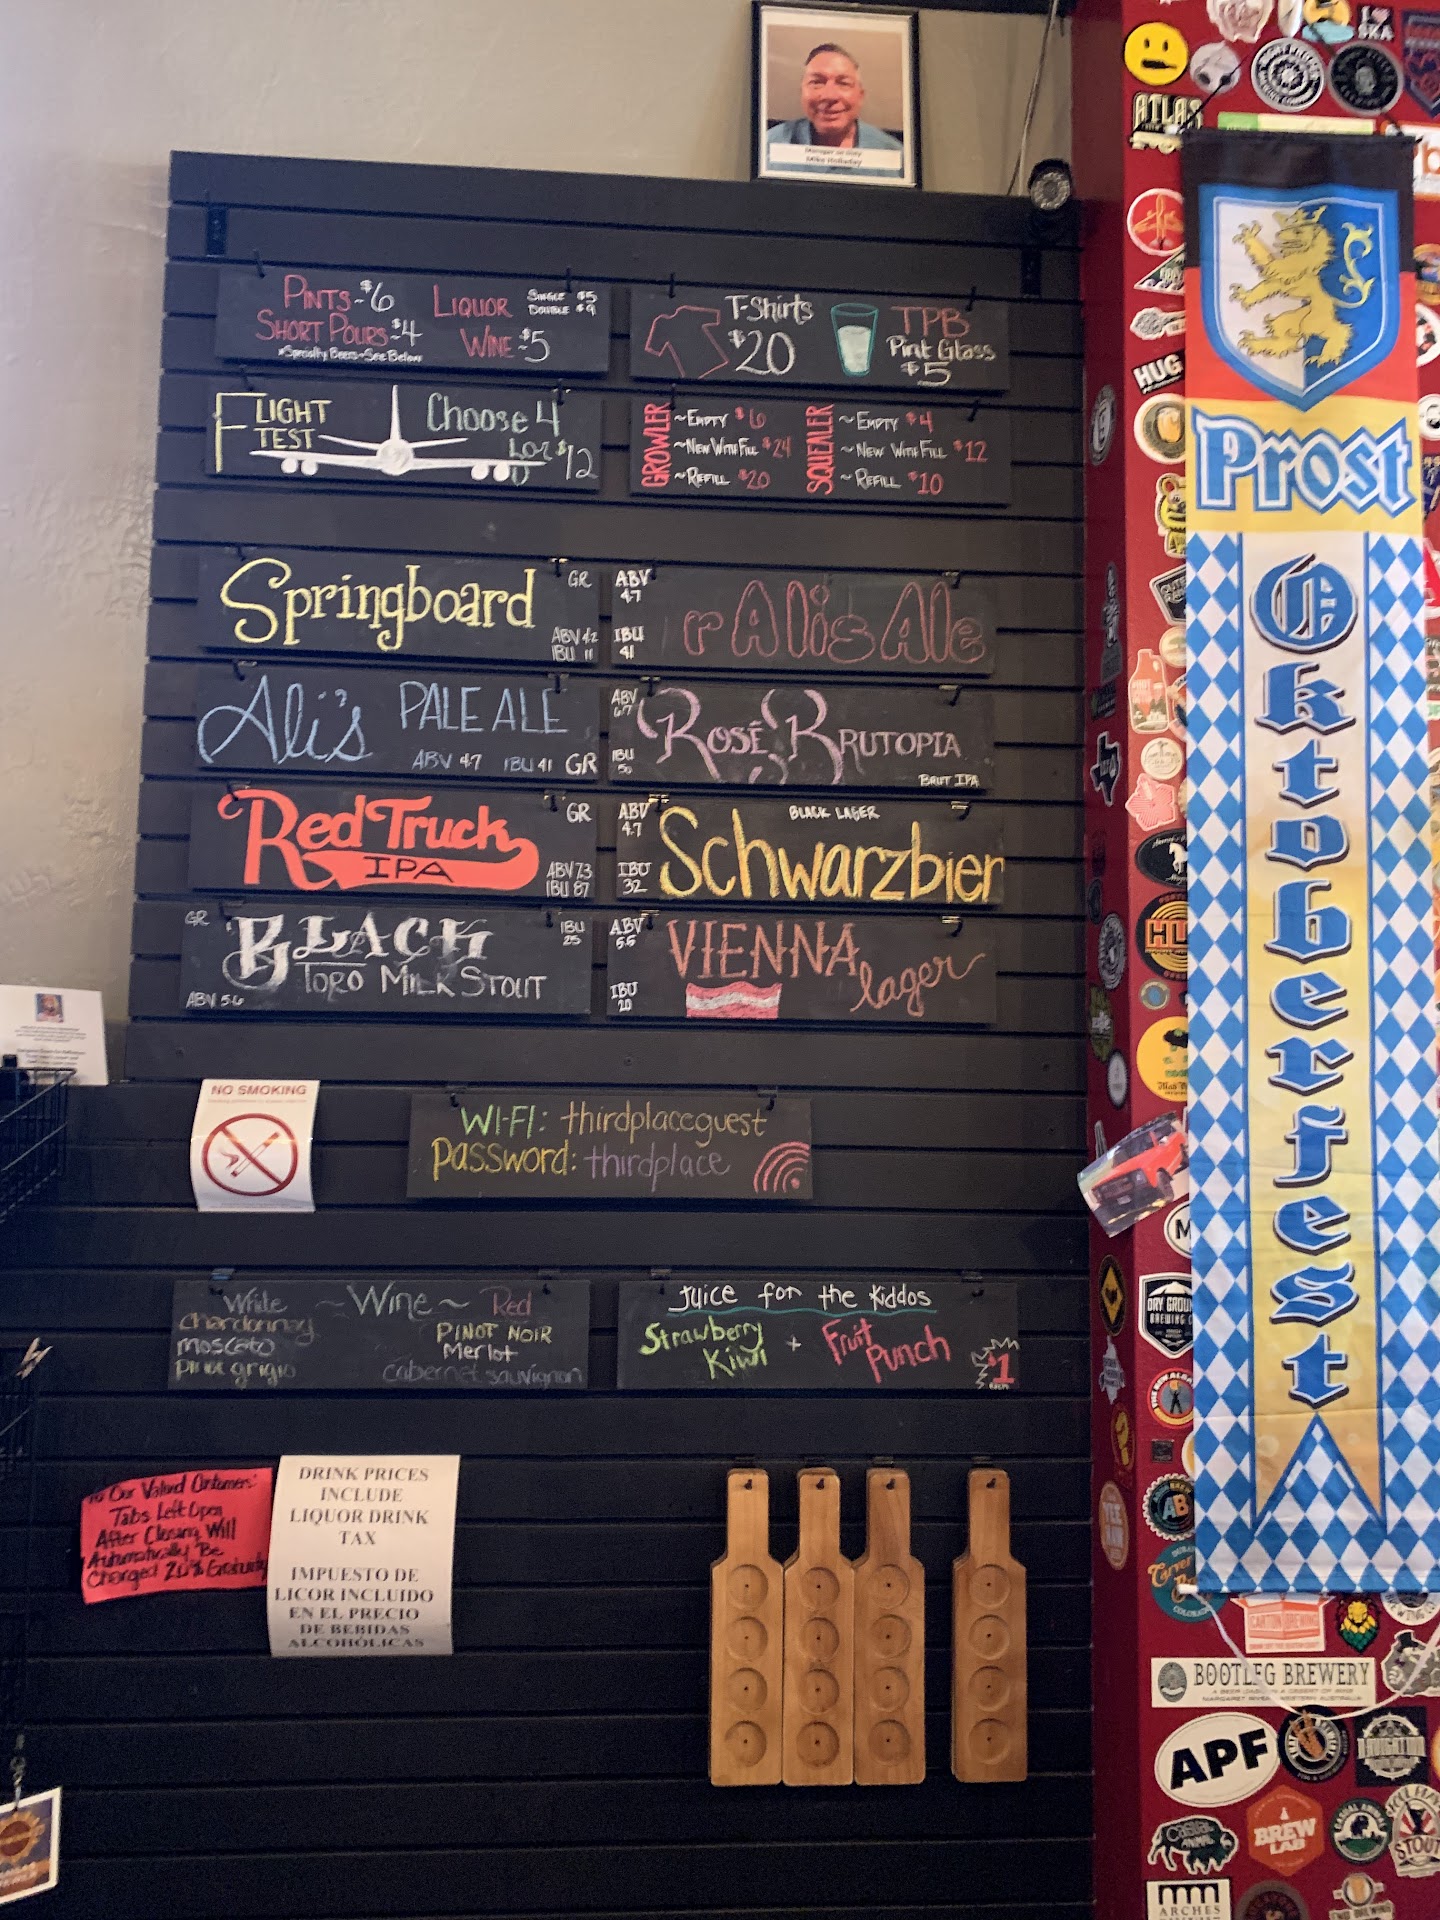 Mike Holladay
PINTS ~ $6
SHORT POURS ~ $4
*Specialty Beers ~ See Below
LIQUOR
SINGLE $5
DOUBLE $9
WINE ~ $5
T-Shirts
$20
TPB
Pint Glass
$5
FLIGHT
TEST
Choose 4
for $12
GROWLER
~ EMPTY $6
~ NEW WITH FILL $24
~ REFILL $20
SQUEALER
~ EMPTY $4
~ NEW WITH FILL $12
~ REFILL $10
Springboard
GR
ABV 4.2
IBU 11
ABV
4.7
IBU
41
rAlis Ale
Ali's PALE ALE
ABV 4.7 IBU 41 GR
ABV
6.7
IBU
Rosé Brutopia
BRUT IPA
Red Truck
IPA
GR
ABV 7.3
IBU 87
ABV
4.7
IBU
32
BLACK LAGER
Schwarzbier
GR
BLACK
TORO MILK STOUT
IBU
25
ABV 5.6
ABV
5.5
IBU
20
VIENNA
lager
NO SMOKING
WI-FI: thirdplaceguest
Password: thirdplace
~ Wine ~
White
chardonnay
moscato
pinot grigio
Red
PINOT NOIR
Merlot
cabernet sauvignon
Juice for the Kiddos
Strawberry
Kiwi
+
Fruit
Punch
$1
To Our Valued Customers:
Tabs Left Open
After Closing Will
Automatically Be
Charged 20% Gratuity
DRINK PRICES
INCLUDE
LIQUOR DRINK
TAX
IMPUESTO DE
LICOR INCLUIDO
EN EL PRECIO
DE BEBIDAS
ALCOHÓLICAS
Prost
Oktoberfest
SKA
ATLAS
HUG
DRY GROUND
BREWING
AB
CARTON BREWING
BOOTLEG BREWERY
MARGARET RIVER WESTERN AUSTRALIA
APF
CASUAL
ANIMAL
BREW
LAB
STOUT
ARCHES